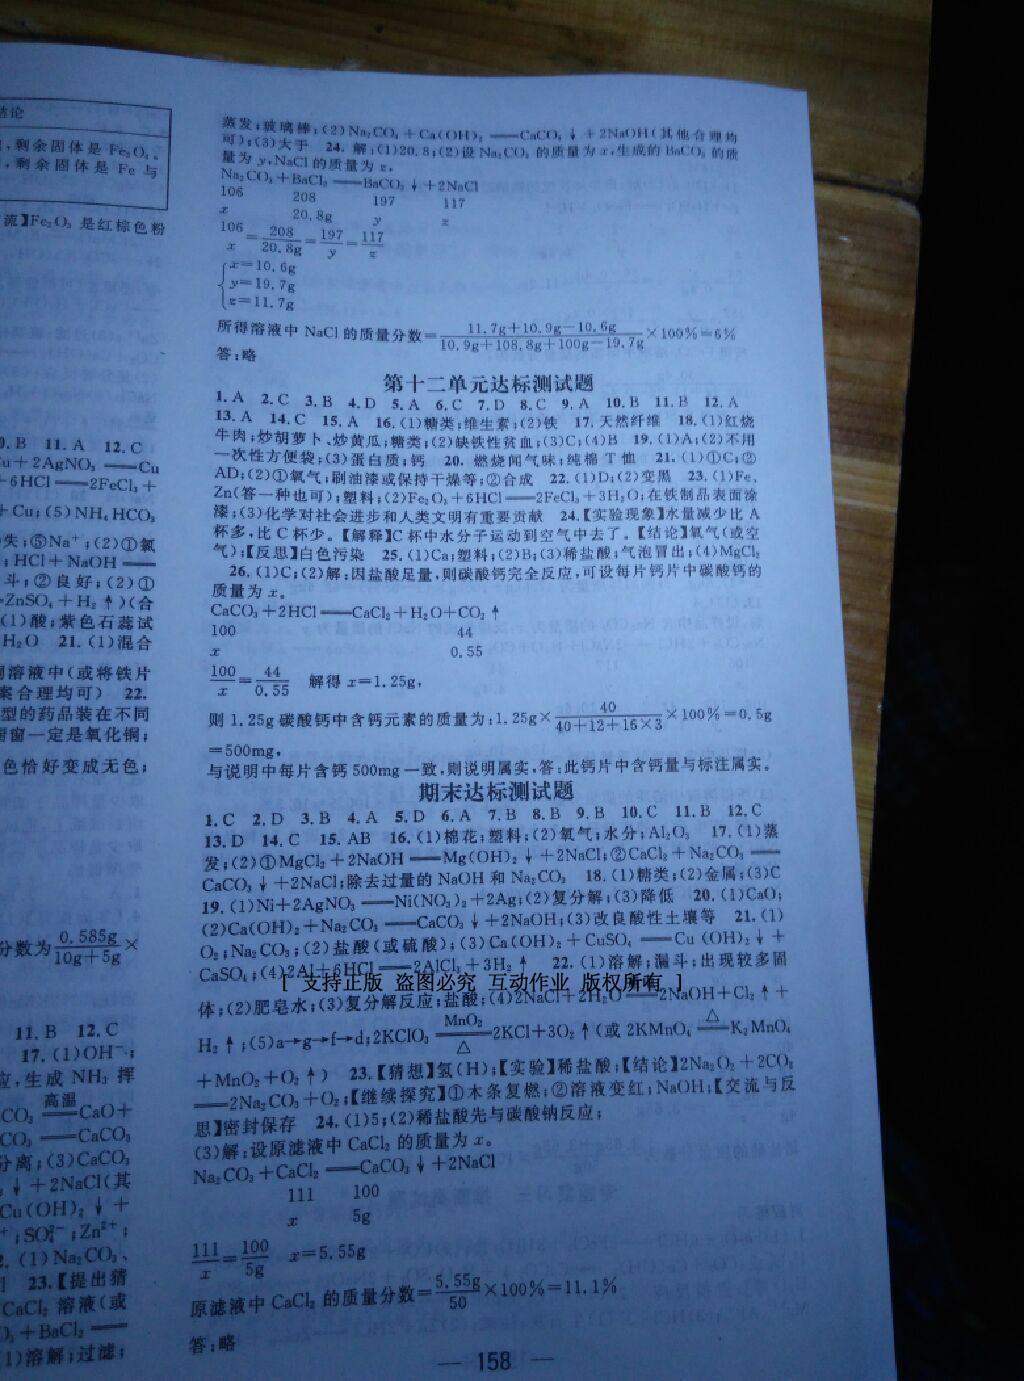 结论
,剩余固体是 Fe₃O₄。
,剩余固体是 Fe 与
流】Fe₂O₃ 是红棕色粉
0.B 11.A 12.C
Cu+2AgNO₃ ══Cu
+6HCl══2FeCl₃+
+Cu;(5)NH₄HCO₃
失;⑤Na⁺;(2)①氯
;HCl+NaOH══
斗;②良好;(2)①
ZnSO₄+H₂↑)(合
(1)酸;紫色石蕊试
H₂O 21.(1)混合
溶液中(或将铁片
案合理均可) 22.
型的药品装在不同
窗一定是氧化铜;
色恰好变成无色;
分数为0.585g/10g+5g×
11.B 12.C
17.(1)OH⁻;
应,生成 NH₃ 挥
CO₃ 高温══CaO+
CO₃ ══CaCO₃
分离;(3)CaCO₃
↓+2NaCl(其
Cu(OH)₂↓+
;SO₄²⁻;Zn²⁺;
.(1)Na₂CO₃、
23.【提出猜
CaCl₂ 溶液(或
+BaCl₂══
(1)溶解;过滤;
蒸发;玻璃棒;(2)Na₂CO₃+Ca(OH)₂══CaCO₃↓+2NaOH(其他合理均
可);(3)大于 24.解:(1)20.8;(2)设 Na₂CO₃ 的质量为 x,生成的 BaCO₃ 的质
量为 y,NaCl 的质量为 z。
Na₂CO₃+BaCl₂══BaCO₃↓+2NaCl
106 208 197 117
x 20.8g y z
106/x=208/20.8g=197/y=117/z
x=10.6g
y=19.7g
z=11.7g
所得溶液中 NaCl 的质量分数=11.7g+10.9g−10.6g/10.9g+108.8g+100g−19.7g×100%=6%
答:略
第十二单元达标测试题
1.A 2.C 3.B 4.D 5.A 6.C 7.D 8.C 9.A 10.B 11.B 12.A
13.A 14.C 15.A 16.(1)糖类;维生素;(2)铁 17.天然纤维 18.(1)红烧
牛肉;炒胡萝卜、炒黄瓜;糖类;(2)缺铁性贫血;(3)C;(4)B 19.(1)A;(2)不用
一次性方便袋;(3)蛋白质;钙 20.燃烧闻气味;纯棉T恤 21.(1)①C;②
AD;(2)①氧气;刷油漆或保持干燥等;②合成 22.(1)D;(2)变黑 23.(1)Fe、
Zn(答一种也可);塑料;(2)Fe₂O₃+6HCl══2FeCl₃+3H₂O;在铁制品表面涂
漆;(3)化学对社会进步和人类文明有重要贡献 24.【实验现象】水量减少比 A
杯多,比 C 杯少。【解释】C 杯中水分子运动到空气中去了。【结论】氧气(或空
气);【反思】白色污染 25.(1)Ca;塑料;(2)B;(3)稀盐酸;气泡冒出;(4)MgCl₂
26.(1)C;(2)解:因盐酸足量,则碳酸钙完全反应,可设每片钙片中碳酸钙的
质量为 x。
CaCO₃+2HCl══CaCl₂+H₂O+CO₂↑
100 44
x 0.55
100/x=44/0.55 解得 x=1.25g,
则 1.25g 碳酸钙中含钙元素的质量为:1.25g×40/40+12+16×3×100%=0.5g
=500mg,
与说明中每片含钙 500mg 一致,则说明属实。答:此钙片中含钙量与标注属实。
期末达标测试题
1.C 2.D 3.B 4.A 5.D 6.A 7.B 8.B 9.B 10.C 11.B 12.C
13.D 14.C 15.AB 16.(1)棉花;塑料;(2)氧气;水分;Al₂O₃ 17.(1)蒸
发;(2)①MgCl₂+2NaOH══Mg(OH)₂↓+2NaCl;②CaCl₂+Na₂CO₃══
CaCO₃↓+2NaCl;除去过量的 NaOH 和 Na₂CO₃ 18.(1)糖类;(2)金属;(3)C
19.(1)Ni+2AgNO₃══Ni(NO₃)₂+2Ag;(2)复分解;(3)降低 20.(1)CaO;
(2)Ca(OH)₂+Na₂CO₃══CaCO₃↓+2NaOH;(3)改良酸性土壤等 21.(1)
O₂;Na₂CO₃;(2)盐酸(或硫酸);(3)Ca(OH)₂+CuSO₄══Cu(OH)₂↓+
CaSO₄;(4)2Al+6HCl══2AlCl₃+3H₂↑ 22.(1)溶解;漏斗;出现较多固
[ 支持正版 盗图必究 互动作业 版权所有 ]
体;(2)肥皂水;(3)复分解反应;盐酸;(4)2NaCl+2H₂O══2NaOH+Cl₂↑+
H₂↑;(5)a→g→f→d;2KClO₃ MnO₂══△ 2KCl+3O₂↑(或 2KMnO₄ △══K₂MnO₄
+MnO₂+O₂↑) 23.【猜想】氢(H);【实验】稀盐酸;【结论】2Na₂O₂+2CO₂
══2Na₂CO₃+O₂;【继续探究】①木条复燃;②溶液变红;NaOH;【交流与反
思】密封保存 24.(1)5;(2)稀盐酸先与碳酸钠反应;
(3)解:设原滤液中 CaCl₂ 的质量为 x。
Na₂CO₃+CaCl₂══CaCO₃↓+2NaCl
111 100
x 5g
111/x=100/5g x=5.55g
原滤液中 CaCl₂ 的质量分数=5.55g/50×100%=11.1%
答:略
— 158 —